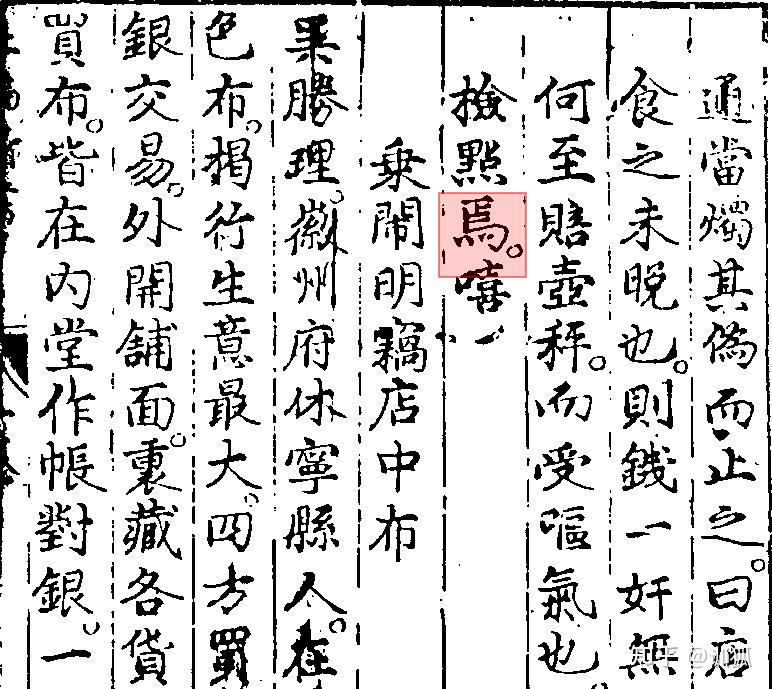 通當燭其偽而止之。曰店
食之未晚也。則錢一奸無
何至賠壺秤。而受嘔氣也。
檢點焉。嘻
乗鬧明竊店中布
吴勝理。徽州府休寧縣人。在
色布。揭行生意最大。四方
銀交易。外開舖面。裏藏各貨
買布。皆在內堂作帳對銀。一
知乎